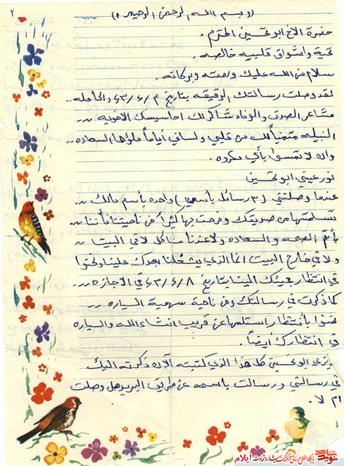 ٢
(( بسم الله الرحمن الرحيم ))
حضرة الأخ ابو تحسين المحترم .
تحية وأشواق قلبية خالصه .
سلام من الله عليك ورحمته وبركاته
لقد وصلت رسالتك الرقيقه بتاريخ ٢/٦/٦٣ والحامله ..
مشاعر الصدق والوفاء شاكراً لك احاسيسك الأخويه
النبيله متمنياً لك من قلبي ولساني أياماً ملؤها السعاده ..
وان لا تمسها بأي مكروه .
نور عيني ابو تحسين
عندما وصلتني ( رسائل بأسمي ) واحده بأسم
تسلمتها من صديقتك وفرحت بها ومن ناحيتنا أننا
بأتم الصحه والسعاده ولا عندنا مشاكل لا في البيت
ولا في خارج البيت الذي يشغلنا بعدك علينا ونحن
في انتظار مجيئك الينا بتاريخ ٨/٦/٦٣ في الاجازه
كما ذكرت في رسالتك ومن ناحية سهمية السياره
فنحن بأنتظار استلامها عن قريب انشاء الله والسياره
في انتظارك ايضاً .
ابو تحسين هذا الذي كتبته الآن وذكرته اليك
في رسالتي ورسالت باسمه عن طريق البريد هل وصلت
ام لا .
ایلام